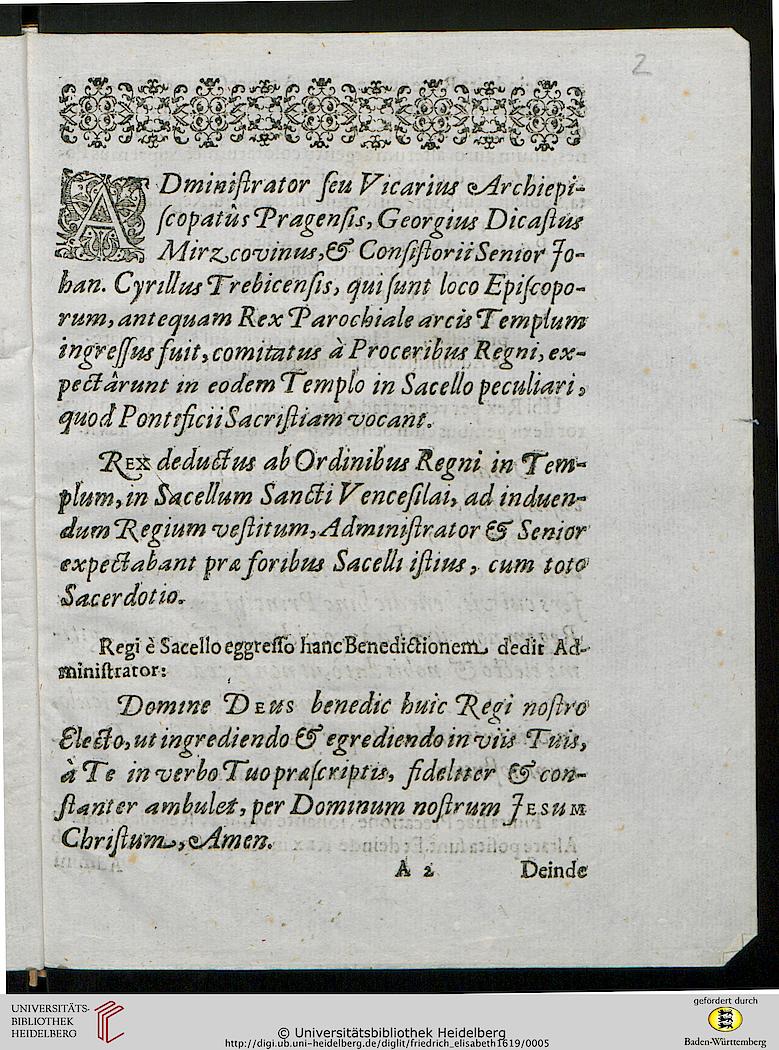 2
ADminiſtrator ſeu Vicarius Archiepi-
ſcopatûs Pragenſis, Georgius Dicaſtus
Mirzcovinus, & Conſiſtorii Senior Jo-
han. Cyrillus Trebicenſis, qui ſunt loco Epiſcopo-
rum, antequam Rex Parochiale arcis Templum
ingreſſus fuit, comitatus à Proceribus Regni, ex-
pectârunt in eodem Templo in Sacello peculiari,
quod Pontificii Sacriſtiam vocant.
REX deductus ab Ordinibus Regni in Tem-
plum, in Sacellum Sancti Venceſilai, ad induen-
dum Regium veſtitum, Adminiſtrator & Senior
expectabant præ foribus Sacelli iſtius, cum toto
Sacerdotio.
Regi è Sacello eggreſſo hanc Benedictionem dedit Ad-
miniſtrator:
Domine DEUS benedic huic Regi noſtro
Electo, ut ingrediendo & egrediendo in viis Tuis,
à Te in verbo Tuo præſcriptis, fideliter & con-
ſtanter ambulet, per Dominum noſtrum JESUM
Chriſtum, Amen.
A 2 Deinde
UNIVERSITÄTS-
BIBLIOTHEK
HEIDELBERG
© Universitätsbibliothek Heidelberg
http://digi.ub.uni-heidelberg.de/diglit/friedrich_elisabeth1619/0005
gefördert durch
Baden-Württemberg